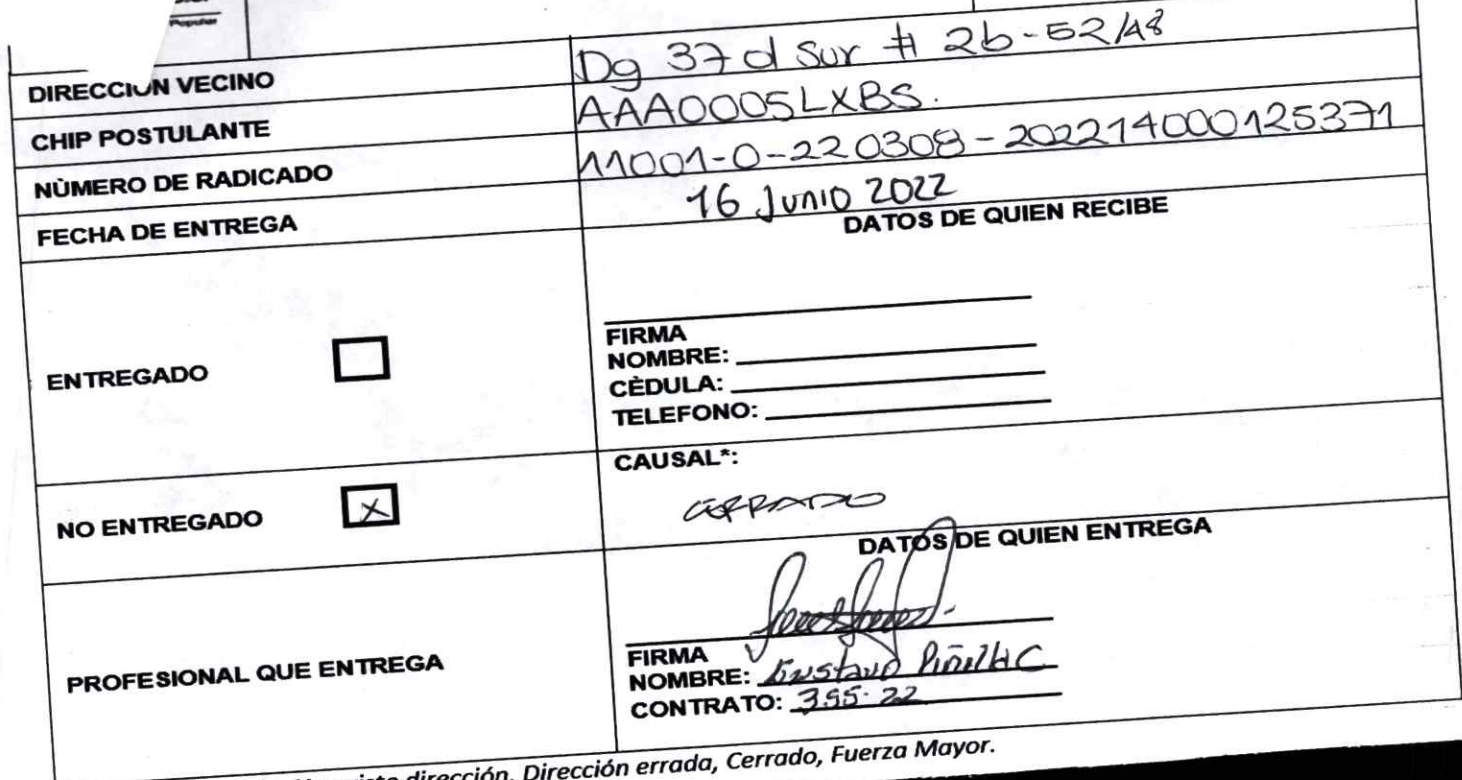 Popular
DIRECCION VECINO Dg 37 d Sur # 2b-52/48
CHIP POSTULANTE AAA0005LXBS.
NÙMERO DE RADICADO 11001-0-220308-202214000125371
FECHA DE ENTREGA 16 Junio 2022
DATOS DE QUIEN RECIBE
ENTREGADO
FIRMA
NOMBRE:
CÈDULA:
TELEFONO:
CAUSAL*:
NO ENTREGADO X CERRADO
DATOS DE QUIEN ENTREGA
PROFESIONAL QUE ENTREGA
FIRMA
NOMBRE: Gustavo Piñilla C
CONTRATO: 395-22
dirección, Dirección errada, Cerrado, Fuerza Mayor.